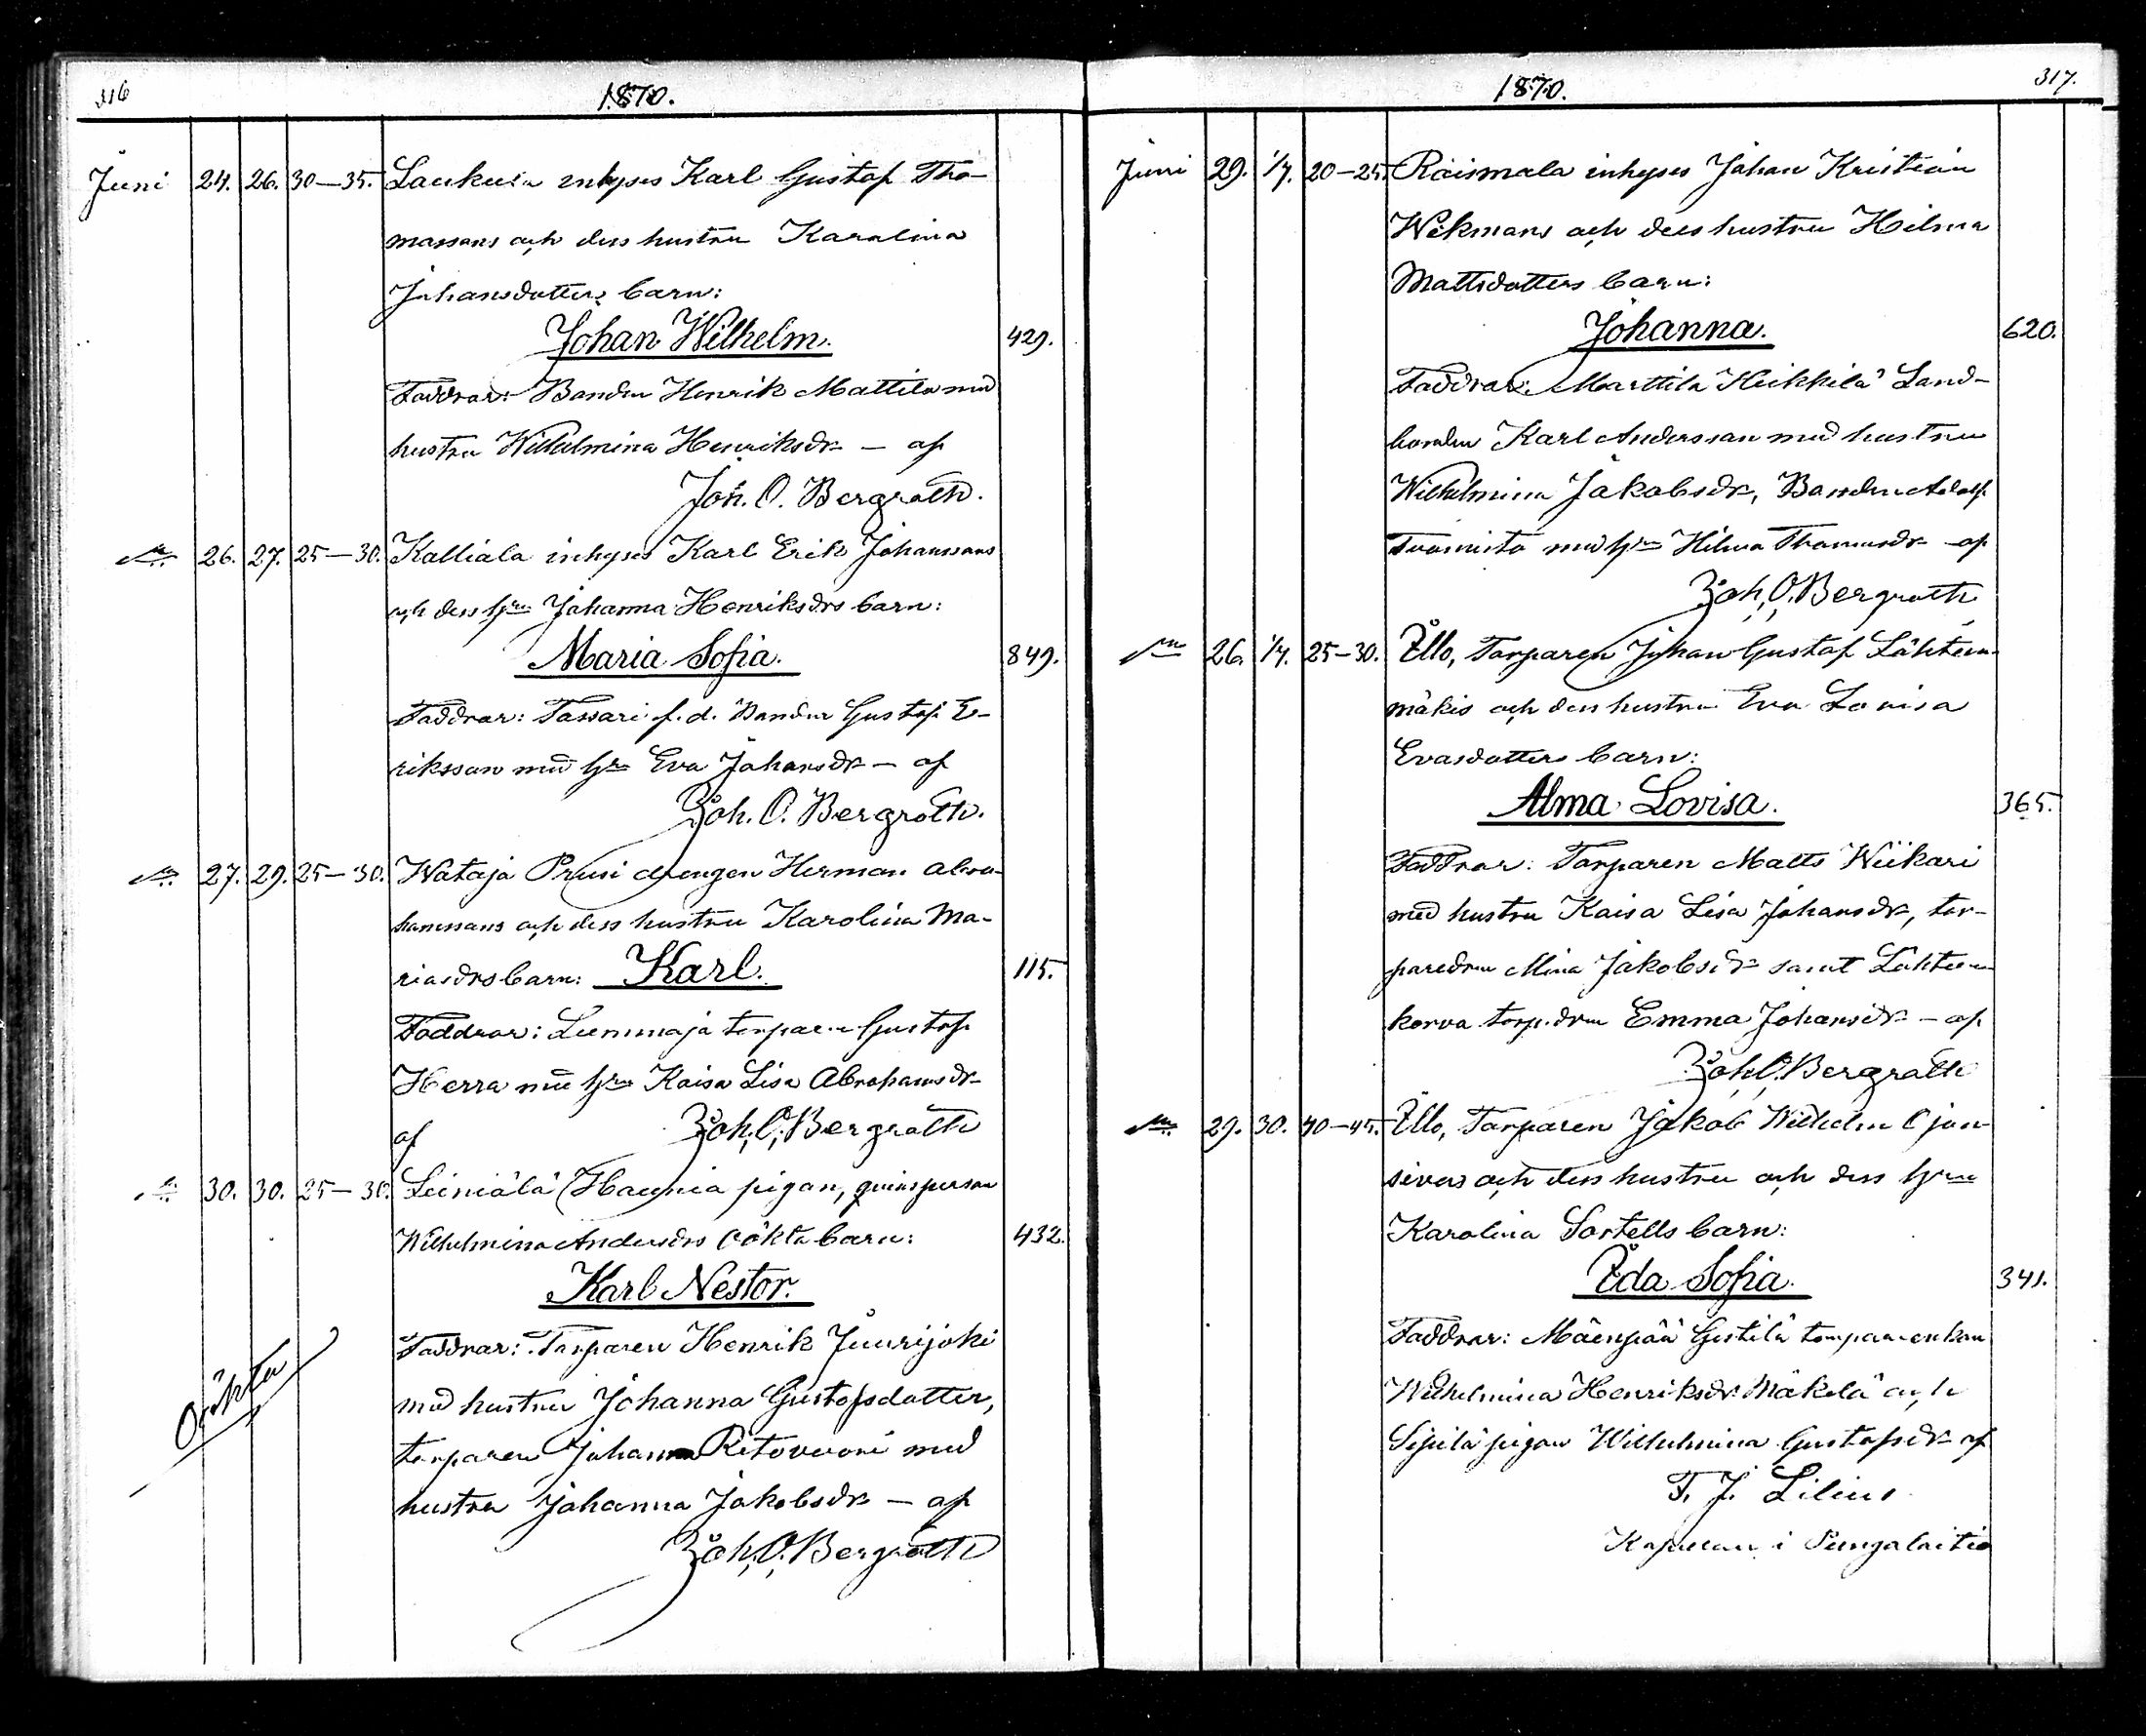 316
1870.
Juni 24. 26. 30—35. Laukula inhyses Karl Gustaf Tho-
massons och dess hustru Karolina
Johansdotters barn:
Johan Wilhelm. 429.
Faddrar: Bonden Henrik Mattila med
hustru Wilhelmina Henriksdr — af
Joh. O. Bergroth.
26. 27. 25—30. Kalliala inhyses Karl Erik Johanssons
och dess hru Johanna Henriksdrs barn:
Maria Sofia. 849.
Faddrar: Tassari f.d. Bonden Gustaf E-
riksson med hru Eva Johansdr — af
Joh. O. Bergroth.
27. 29. 25—30. Wataja Prusi drengen Herman Abra-
hamssons och dess hustru Karolina Ma-
riasdrs barn: Karl. 115.
Faddrar: Lemmaja torparen Gustaf
Herra med hru Kaisa Lisa Abrahamsdr
af Joh. O. Bergroth
30. 30. 25—30. Leiniälä Haunia pigan, qvinsperson
Wilhelmina Andersdrs oäkta barn: 432.
Karl Nestor.
Oäkta
Faddrar: Torparen Henrik Juurijoki
med hustru Johanna Gustafsdotter,
torparen Johan Ritovuori med
hustru Johanna Jakobsdr — af
Joh. O. Bergroth
317.
1870.
Juni 29. 1/7. 20—25. Räismälä inhyses Johan Kristian
Wekmans och dess hustru Hilma
Mattsdotters barn:
Johanna. 620.
Faddrar: Marttila Heikkilä Land-
bonden Karl Andersson med hustru
Wilhelmina Jakobsdr, Bonden Adolf
Tuomisto med hru Hilma Thomasdr af
Joh. O. Bergroth
26. 1/7. 25—30. Illo, Torparen Johan Gustaf Lähteen-
mäkis och dess hustru Eva Lovisa
Evasdotters barn:
Alma Lovisa. 365.
Faddrar: Torparen Matts Wiikari
med hustru Kaisa Lisa Johansdr, tor-
paredrn Mina Jakobsdr samt Lähteen-
korva torp.drn Emma Johansdr — af
Joh. O. Bergroth
29. 30. 40—45. Illo, Torparen Jakob Wilhelm Ojan-
sivus och dess hustru och dess hru
Karolina Sortells barn:
Ida Sofia. 341.
Faddrar: Mäenpää Gustilä torpareenkan
Wilhelmina Henriksdr Mäkelä och
Sipilä pigan Wilhelmina Gustafsdr af
F. J. Lilius
Kapellan i Pungalaitio